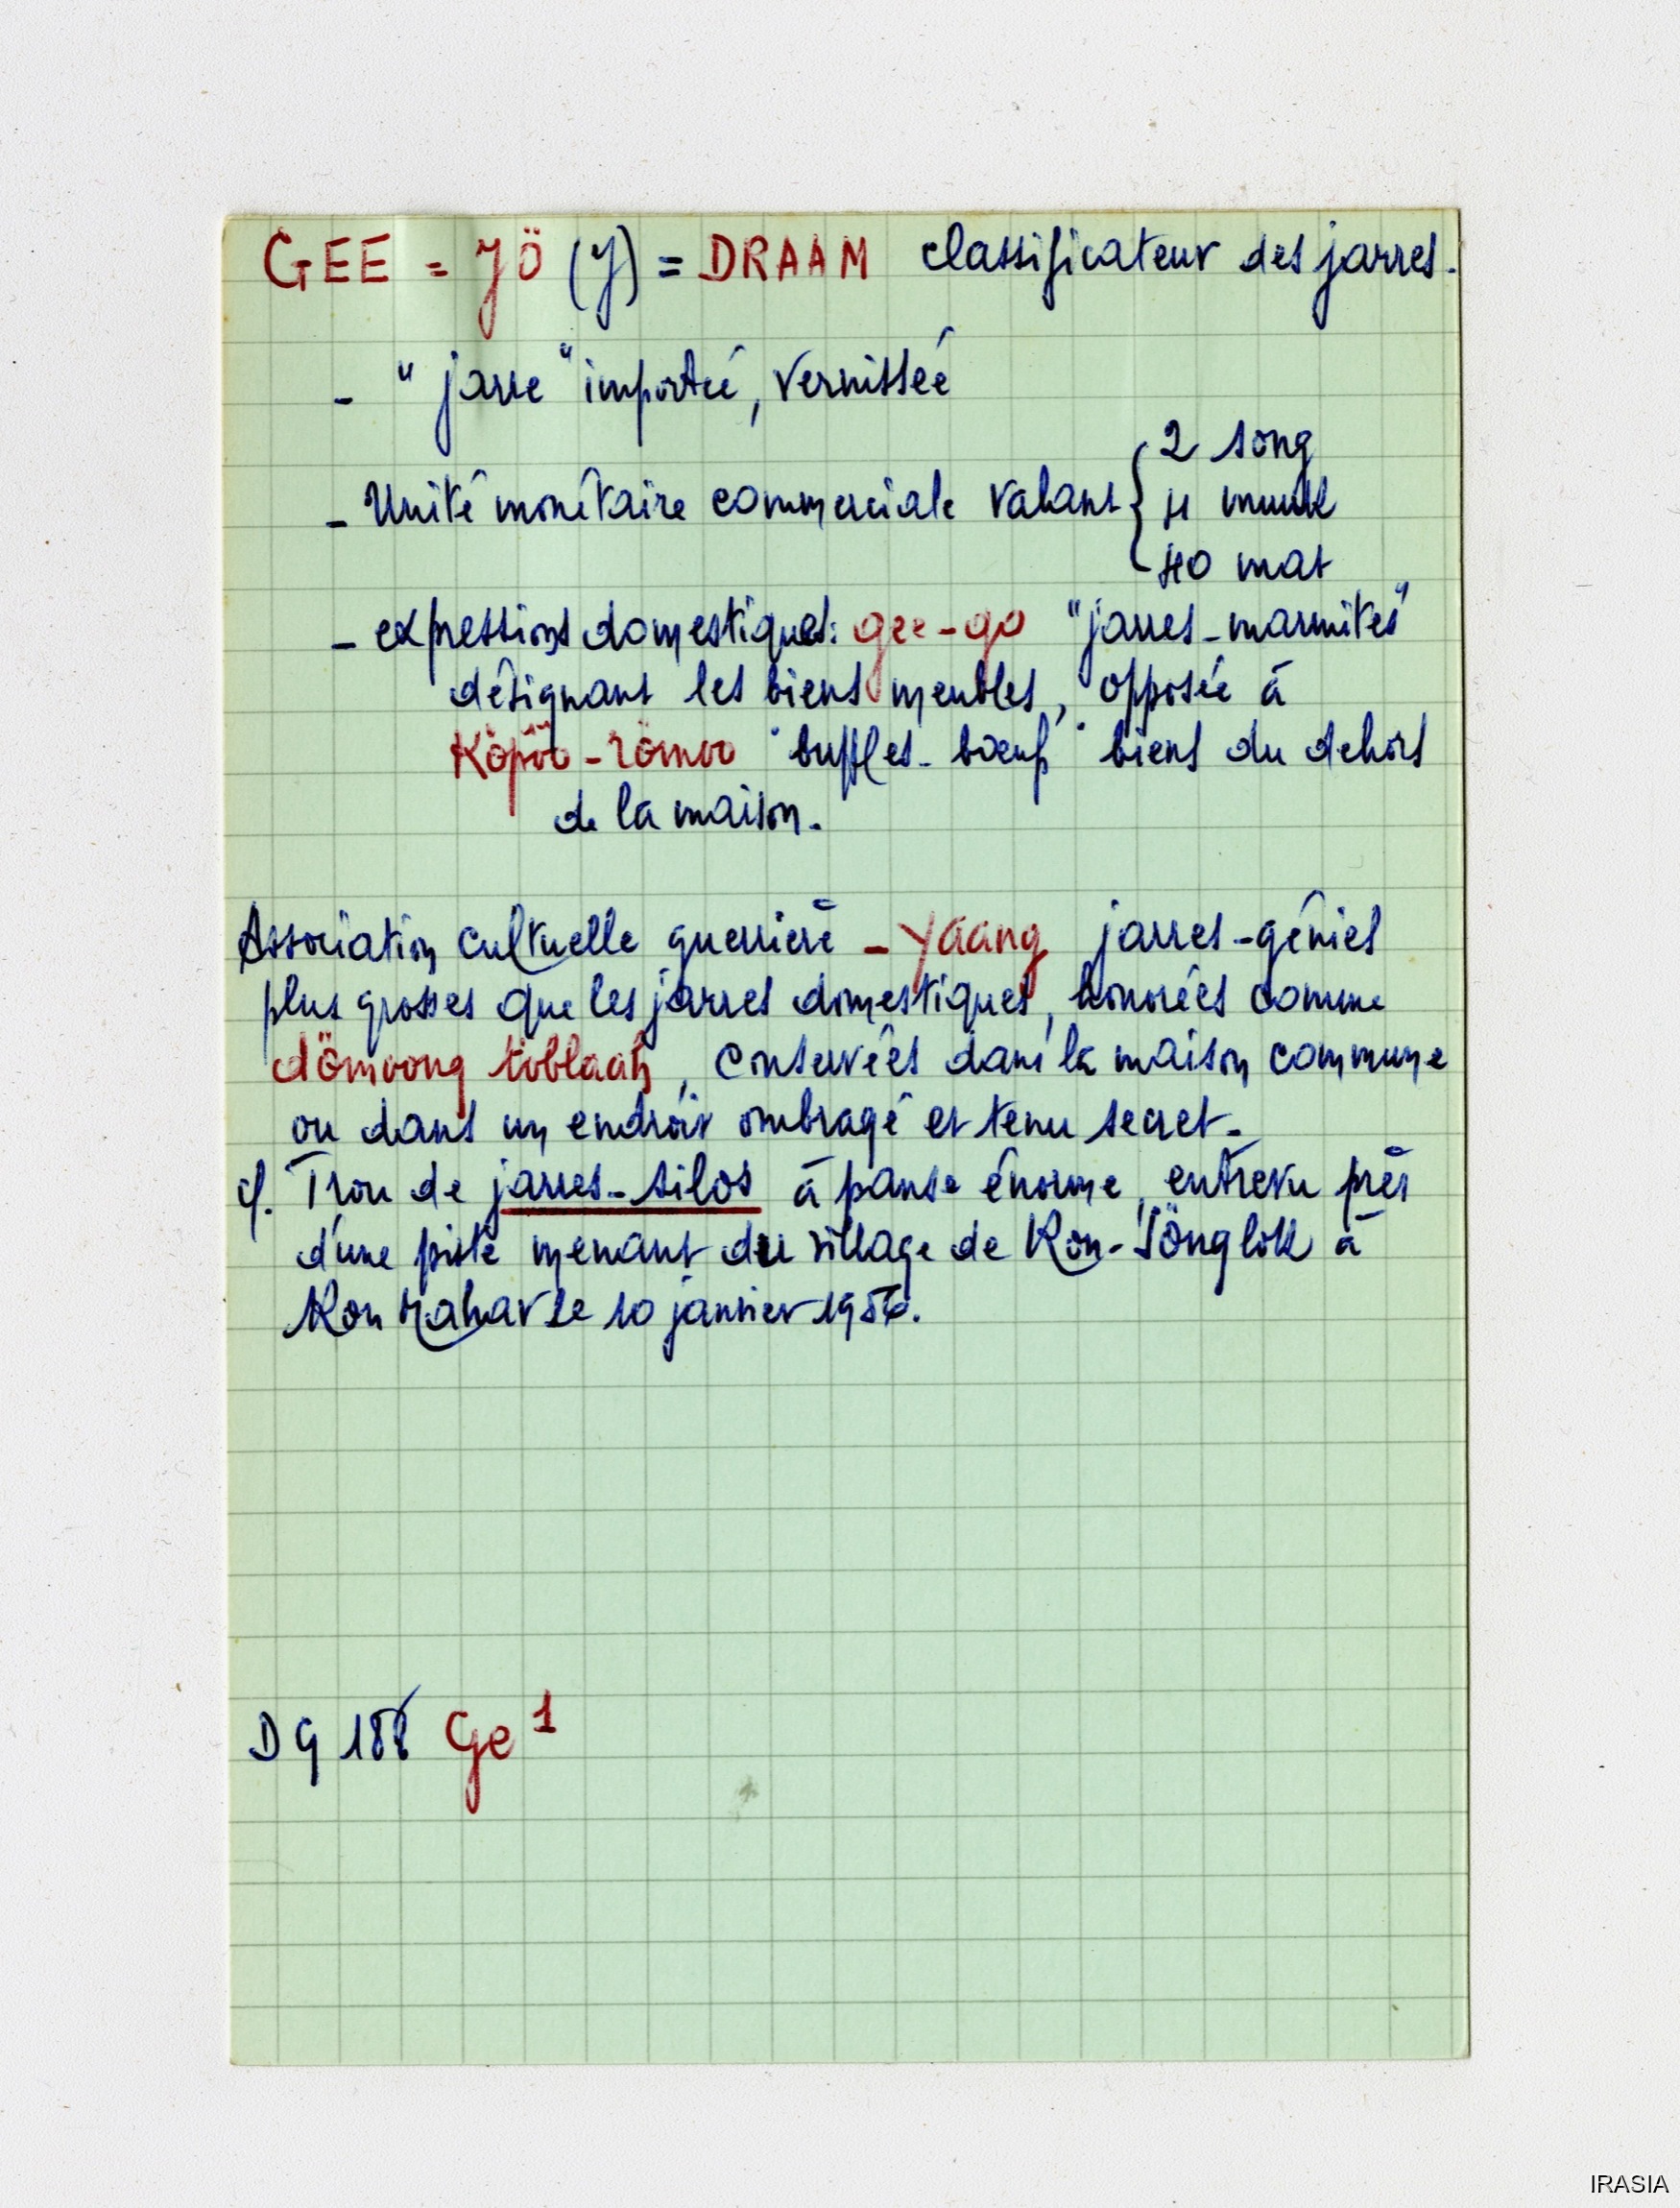 GEE = JÖ (J) = DRAAM classificateur des jarres.
- "jarre" importée, vernissée
- Unité monétaire commerciale valant { 2 song
4 muuk
40 mat
- expressions domestiques: gee-go "jarres-marmites"
désignant les biens meubles, opposée à
Köpöö-römoo "buffles-bœufs" biens du dehors
de la maison.
Association cultuelle guerrière - Yaang jarres-génies
plus grosses que les jarres domestiques, honorées comme
dömoong töblaah, conservées dans la maison commune
ou dans un endroit ombragé et tenu secret.
cf. Trou de jarres-silos à panse énorme, entrevu près
d'une piste menant du village de Kon-Jönglök à
Kon le 10 janvier 1956.
DG 188 Ge 1
IRASIA